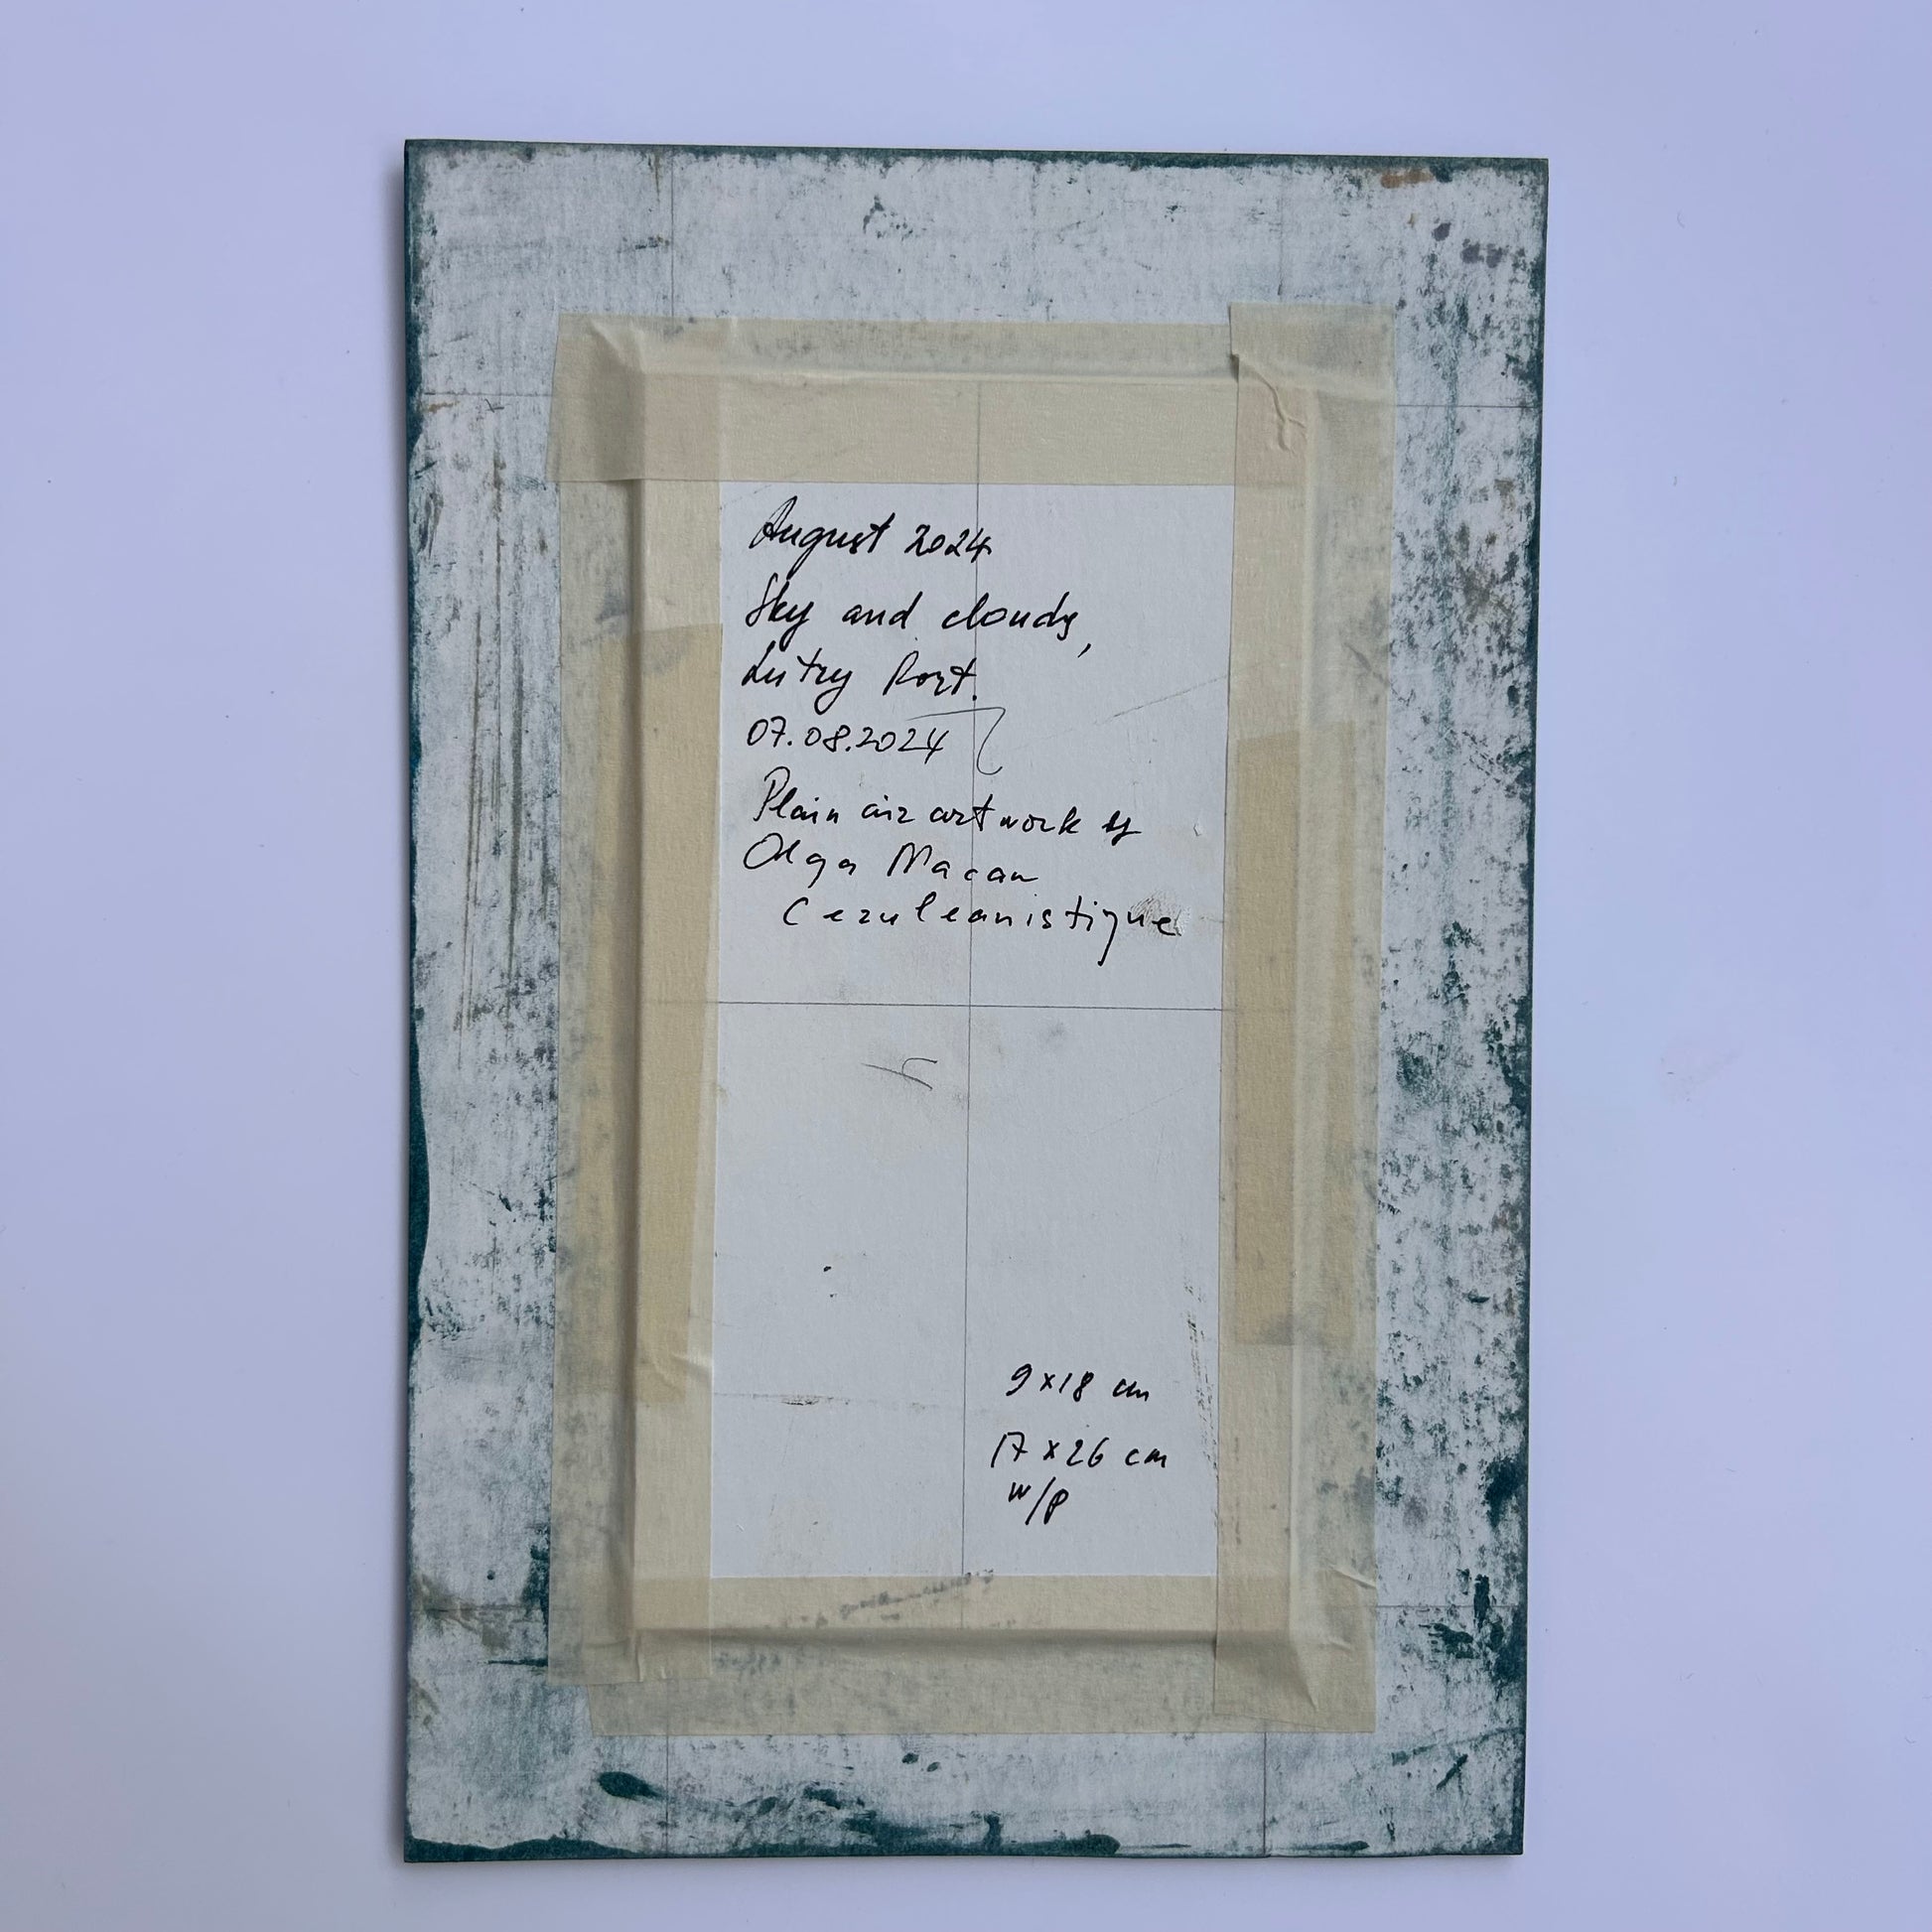 August 2024
Sky and clouds,
Lutry Port.
07.08.2024
Plain air artwork by
Olga Macan
Ceruleanistique
9x18 cm
17x26 cm
w/p